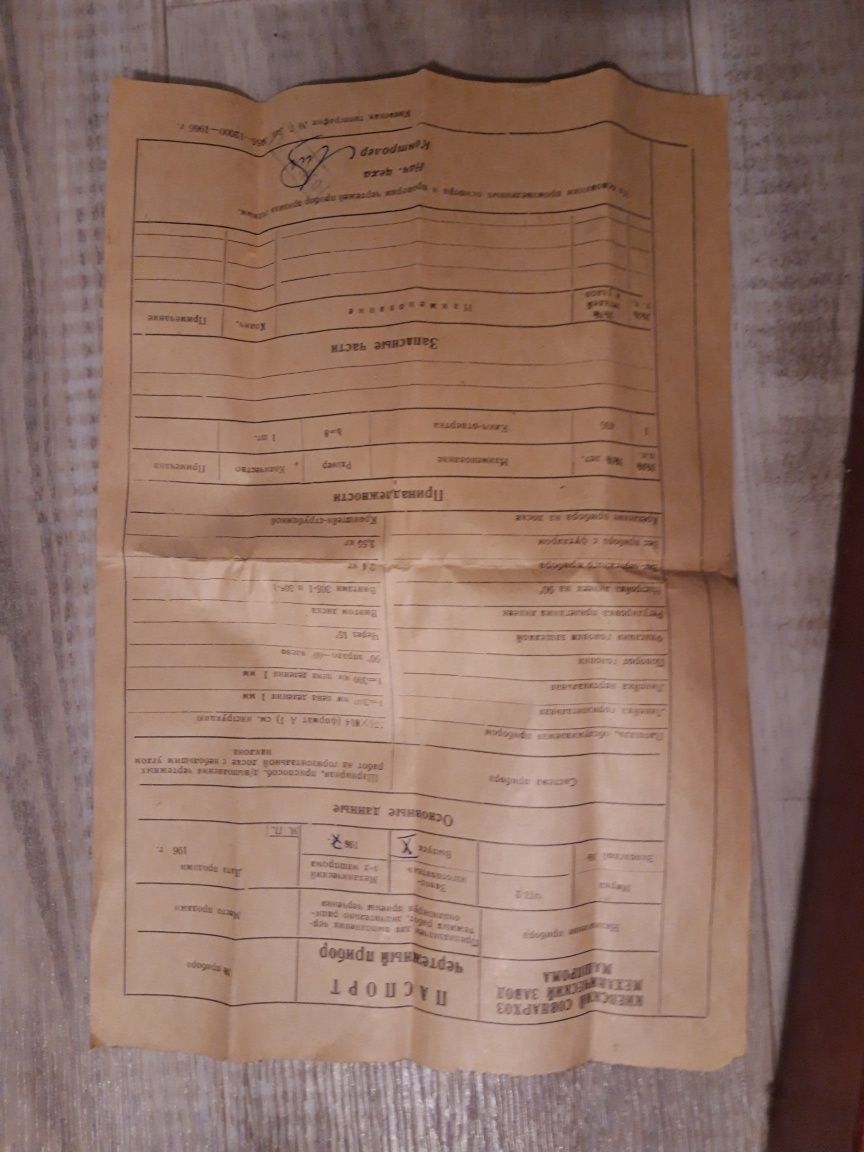 КИЕВСКИЙ СОВНАРХОЗ
МЕХАНИЧЕСКИЙ ЗАВОД
МАШПРОМА
ПАСПОРТ
чертежный прибор
№ прибора
Название прибора
Предназначен для выполнения чер-
тежных работ, значительно рацио-
нализируя приемы черчения
Место продажи
Марка
ЧП-2
Завод-
изготовитель
Механический
з-д машпрома
Дата продажи
Заводской №
Выпуск X
1967
М. П.
196 г.
Основные данные
Система прибора
Шарнирная, приспособ. д/выполнения чертежных
работ на горизонтальной доске с небольшим углом
наклона
Площадь, обслуживаемая прибором
(формат А 1) см. инструкцию
Линейка горизонтальная
цена деления 1 мм
Линейка вертикальная
1—300 мм цена деления 1 мм
Поворот головки
90° вправо—60° влево
Фиксация головки защелкой
Через 15°
Регулировка прилегания линеек
Винтом диска
Настройка линеек на 90°
Винтами
Вес чертежного прибора
2,4 кг
Вес прибора с футляром
3,55 кг
Крепление прибора на доске
Кронштейн-струбциной
Принадлежности
№№ п.п.
№№ дет.
Наименование
Размер
Количество
Примечание
1
Ключ-отвертка
1 шт.
Запасные части
№№ п. п.
№№ деталей и узлов
Наименование
Колич.
Примечание
На основании произведенных осмотра и проверки чертежный прибор признан годным.
Нач. цеха
Контролер
Киевская типография № 7, 12000—1966 г.